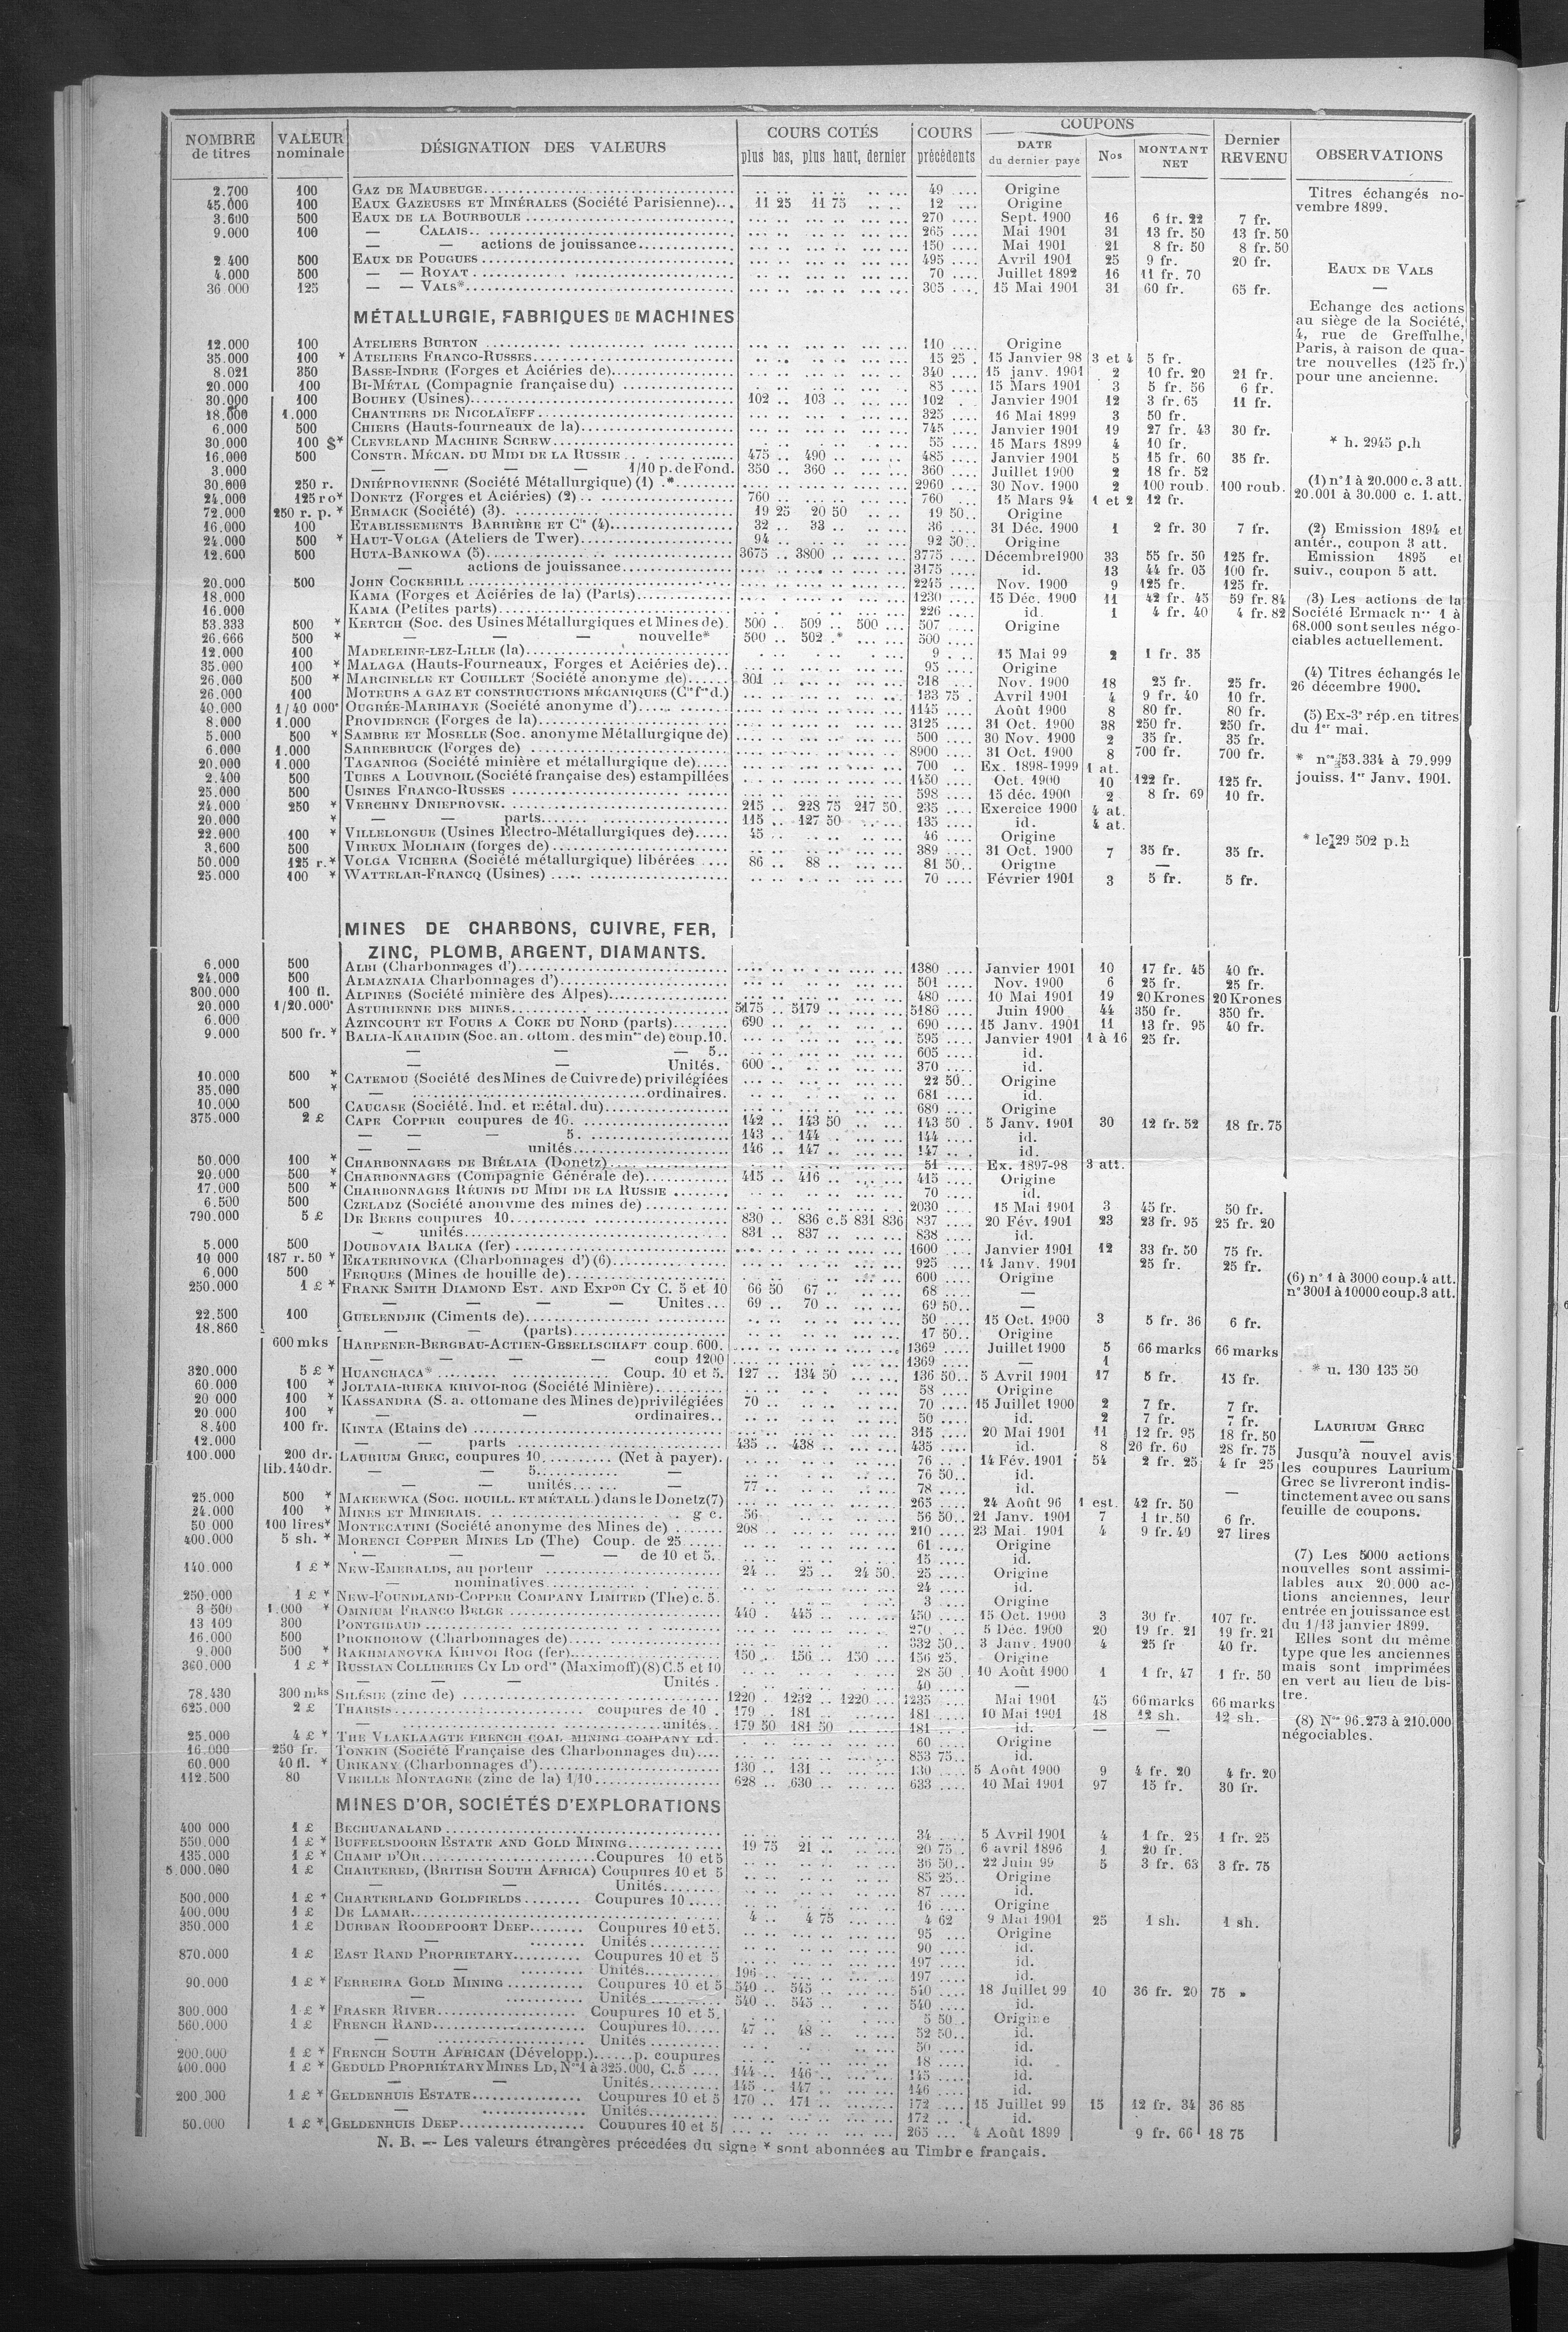 NOMBRE de titres | VALEUR nominale | DÉSIGNATION DES VALEURS | COURS COTÉS plus bas, plus haut, dernier | COURS précédents | COUPONS DATE du dernier payé | Nos | MONTANT NET | Dernier REVENU | OBSERVATIONS
2.700 100 GAZ DE MAUBEUGE 49 Origine
45.000 100 EAUX GAZEUSES ET MINÉRALES (Société Parisienne) 11 25 11 75 12 Origine
3.600 500 EAUX DE LA BOURBOULE 270 Sept. 1900 16 6 fr. 22 7 fr.
9.000 100 — CALAIS 265 Mai 1901 31 13 fr. 50 13 fr. 50
— — actions de jouissance 150 Mai 1901 21 8 fr. 50 8 fr. 50
2.400 500 EAUX DE POUGUES 495 Avril 1901 25 9 fr. 20 fr.
4.000 500 — — ROYAT 70 Juillet 1892 16 11 fr. 70
36 000 125 — — VALS* 305 15 Mai 1901 31 60 fr. 65 fr.
MÉTALLURGIE, FABRIQUES DE MACHINES
12.000 100 ATELIERS BURTON 110 Origine
35.000 100 * ATELIERS FRANCO-RUSSES 15 25 15 Janvier 98 3 et 4 5 fr.
8.021 350 BASSE-INDRE (Forges et Aciéries de) 340 15 janv. 1901 2 10 fr. 20 21 fr.
20.000 100 BI-MÉTAL (Compagnie française du) 85 15 Mars 1901 3 5 fr. 56 6 fr.
30.000 100 BOUHEY (Usines) 102 103 102 Janvier 1901 12 3 fr. 65 11 fr.
18.000 1.000 CHANTIERS DE NICOLAÏEFF 325 16 Mai 1899 3 50 fr.
6.000 500 CHIERS (Hauts-fourneaux de la) 745 Janvier 1901 19 27 fr. 43 30 fr.
30.000 100 $* CLEVELAND MACHINE SCREW 55 15 Mars 1899 4 10 fr.
16.000 500 CONSTR. MÉCAN. DU MIDI DE LA RUSSIE 475 490 485 Janvier 1901 5 15 fr. 60 35 fr.
3.000 — — — — 1/10 p. de Fond. 350 360 360 Juillet 1900 2 18 fr. 52
30.000 250 r. DNIÉPROVIENNE (Société Métallurgique) (1) * 2960 30 Nov. 1900 2 100 roub. 100 roub.
24.000 125 ro* DONETZ (Forges et Aciéries) (2) 760 760 15 Mars 94 1 et 2 12 fr.
72.000 250 r. p. * ERMACK (Société) (3) 19 25 20 50 19 50 Origine
16.000 100 ETABLISSEMENTS BARRIÈRE ET Cie (4) 32 33 36 31 Déc. 1900 1 2 fr. 30 7 fr.
24.000 500 * HAUT-VOLGA (Ateliers de Twer) 94 92 50 Origine
12.600 500 HUTA-BANKOWA (5) 3675 3800 3775 Décembre 1900 33 55 fr. 50 125 fr.
— actions de jouissance 3175 id. 13 44 fr. 05 100 fr.
20.000 500 JOHN COCKERILL 2245 Nov. 1900 9 125 fr. 125 fr.
18.000 KAMA (Forges et Aciéries de la) (Parts) 1230 15 Déc. 1900 11 42 fr. 45 59 fr. 84
16.000 KAMA (Petites parts) 226 id. 1 4 fr. 40 4 fr. 82
53.333 500 * KERTCH (Soc. des Usines Métallurgiques et Mines de) 500 509 500 507 Origine
26.666 500 * — — — nouvelle* 500 502 * 500
12.000 100 MADELEINE-LEZ-LILLE (la) 9 15 Mai 99 2 1 fr. 35
35.000 100 * MALAGA (Hauts-Fourneaux, Forges et Aciéries de) 95 Origine
26.000 500 * MARCINELLE ET COUILLET (Société anonyme de) 301 318 Nov. 1900 18 25 fr. 25 fr.
26.000 100 MOTEURS A GAZ ET CONSTRUCTIONS MÉCANIQUES (Cie fse d.) 133 75 Avril 1901 4 9 fr. 40 10 fr.
40.000 1/40 000e OUGRÉE-MARIHAYE (Société anonyme d') 1145 Août 1900 8 80 fr. 80 fr.
8.000 1.000 PROVIDENCE (Forges de la) 3125 31 Oct. 1900 38 250 fr. 250 fr.
5.000 500 * SAMBRE ET MOSELLE (Soc. anonyme Métallurgique de) 500 30 Nov. 1900 2 35 fr. 35 fr.
6.000 1.000 SARREBRUCK (Forges de) 8900 31 Oct. 1900 8 700 fr. 700 fr.
20.000 1.000 TAGANROG (Société minière et métallurgique de) 700 Ex. 1898-1999 1 at.
2.400 500 TUBES A LOUVROIL (Société française des) estampillées 1450 Oct. 1900 10 122 fr. 125 fr.
25.000 500 USINES FRANCO-RUSSES 598 15 déc. 1900 2 8 fr. 69 10 fr.
24.000 250 * VERCHNY DNIEPROVSK 215 228 75 217 50 235 Exercice 1900 4 at.
20.000 * — — parts 115 127 50 135 id. 4 at.
22.000 100 * VILLELONGUE (Usines Electro-Métallurgiques de) 45 46 Origine
3.600 500 VIREUX MOLHAIN (forges de) 389 31 Oct. 1900 7 35 fr. 35 fr.
50.000 125 r.* VOLGA VICHERA (Société métallurgique) libérées 86 88 81 50 Origine —
25.000 100 * WATTELAR-FRANCQ (Usines) 70 Février 1901 3 5 fr. 5 fr.
MINES DE CHARBONS, CUIVRE, FER,
ZINC, PLOMB, ARGENT, DIAMANTS.
6.000 500 ALBI (Charbonnages d') 1380 Janvier 1901 10 17 fr. 45 40 fr.
24.000 500 ALMAZNAIA Charbonnages d') 501 Nov. 1900 6 25 fr. 25 fr.
300.000 100 fl. ALPINES (Société minière des Alpes) 480 10 Mai 1901 19 20 Krones 20 Krones
20.000 1/20.000e ASTURIENNE DES MINES 5175 5179 5180 Juin 1900 44 350 fr. 350 fr.
6.000 AZINCOURT ET FOURS A COKE DU NORD (parts) 690 690 15 Janv. 1901 11 13 fr. 95 40 fr.
9.000 500 fr. * BALIA-KARAIDIN (Soc. an. ottom. des mines de) coup. 10. 595 Janvier 1901 1 à 16 25 fr.
— — — 5 605 id.
— — Unités. 600 370 id.
10.000 500 * CATEMOU (Société des Mines de Cuivre de) privilégiées 22 50 Origine
35.000 * — ordinaires. 681 id.
10.000 500 CAUCASE (Société. Ind. et métal. du) 680 Origine
375.000 2 £ CAPE COPPER coupures de 10. 142 143 50 143 50 5 Janv. 1901 30 12 fr. 52 18 fr. 75
— — — 5. 143 144 144 id.
— — unités 146 147 147 id.
50.000 100 * CHARBONNAGES DE BIÉLAIA (Donetz) 51 Ex. 1897-98 3 att.
20.000 500 * CHARBONNAGES (Compagnie Générale de) 415 416 415 Origine
17.000 500 * CHARBONNAGES RÉUNIS DU MIDI DE LA RUSSIE 70 id.
6.500 500 CZELADZ (Société anonyme des mines de) 2030 15 Mai 1901 3 45 fr. 50 fr.
790.000 5 £ DE BEERS coupures 10 830 836 c.5 831 836 837 20 Fév. 1901 23 23 fr. 95 25 fr. 20
— unités 831 837 838 id.
5.000 500 DOUBOVAIA BALKA (fer) 1600 Janvier 1901 12 33 fr. 50 75 fr.
10 000 187 r. 50 * EKATERINOVKA (Charbonnages d') (6) 925 14 Janv. 1901 25 fr. 25 fr.
6.000 500 FERQUES (Mines de houille de) 600 Origine
250.000 1 £ * FRANK SMITH DIAMOND EST. AND EXPon CY C. 5 et 10 66 50 67 68 —
— — — — Unites 69 70 69 50 —
22.500 100 GUELENDJIK (Ciments de) 50 15 Oct. 1900 3 5 fr. 36 6 fr.
18.860 — — (parts) 17 50 Origine
600 mks HARPENER-BERGBAU-ACTIEN-GESELLSCHAFT coup. 600. 1369 Juillet 1900 5 66 marks 66 marks
— — — — coup 1200 1369 — 1
320.000 5 £ * HUANCHACA* Coup. 10 et 5. 127 134 50 136 50 5 Avril 1901 17 5 fr. 13 fr.
60.000 100 * JOLTAIA-RIEKA KRIVOI-ROG (Société Minière) 58 Origine
20 000 100 * KASSANDRA (S. a. ottomane des Mines de) privilégiées 70 70 15 Juillet 1900 2 7 fr. 7 fr.
20.000 100 * — — ordinaires 50 id. 2 7 fr. 7 fr.
8.400 100 fr. KINTA (Etains de) 315 20 Mai 1901 11 12 fr. 95 18 fr. 50
12.000 — — parts 435 438 435 id. 8 26 fr. 60 28 fr. 75
100.000 200 dr. LAURIUM GREC, coupures 10 (Net à payer) 76 14 Fév. 1901 54 2 fr. 25 4 fr 25
lib. 140 dr. — — 5 — 76 50 id.
— — unités — 77 78 id. —
25.000 500 * MAKEEWKA (SOC. HOUILL. ET MÉTALL.) dans le Donetz (7) 265 24 Août 96 1 est. 42 fr. 50
24.000 100 * MINES ET MINERAIS g c. 56 56 50 21 Janv. 1901 7 1 fr. 50 6 fr.
50 000 100 lires* MONTECATINI (Société anonyme des Mines de) 208 210 23 Mai. 1901 4 9 fr. 40 27 lires
400.000 5 sh. * MORENCI COPPER MINES LD (The) Coup. de 25 61 Origine
— — — — de 10 et 5. 15 id.
140.000 1 £ * NEW-EMERALDS, au porteur 24 25 24 50 25 Origine
— nominatives 24 id.
250.000 1 £ * NEW-FOUNDLAND-COPPER COMPANY LIMITED (The) c. 5. 3 Origine
3 500 1.000 * OMNIUM FRANCO BELGE 440 445 450 15 Oct. 1900 3 30 fr. 107 fr.
13 109 300 PONTGIBAUD 270 5 Déc. 1900 20 19 fr. 21 19 fr. 21
16.000 500 PROKHOROW (Charbonnages de) 332 50 3 Janv. 1900 4 25 fr 40 fr.
9.000 500 * RAKHMANOVKA KRIVOI ROG (fer) 150 156 150 156 25 Origine
360.000 1 £ * RUSSIAN COLLIERIES CY LD ordres (Maximoff) (8) C. 5 et 10 28 50 10 Août 1900 1 1 fr. 47 1 fr. 50
— — — Unités 40 —
78.430 300 mks SILÉSIE (zinc de) 1220 1232 1220 1235 Mai 1901 45 66 marks 66 marks
625.000 2 £ THARSIS coupures de 10 179 181 181 10 Mai 1901 18 12 sh. 12 sh.
— unités 179 50 181 50 181 id. — —
25.000 4 £ * THE VLAKLAAGTE FRENCH COAL MINING COMPANY Ld. 60 Origine
16.000 250 fr. TONKIN (Société Française des Charbonnages du) 853 75 id.
60.000 40 fl. * URIKANY (Charbonnages d') 130 131 130 5 Août 1900 9 4 fr. 20 4 fr. 20
112.500 80 VIEILLE MONTAGNE (zinc de la) 1/10 628 630 633 10 Mai 1901 97 15 fr. 30 fr.
MINES D'OR, SOCIÉTÉS D'EXPLORATIONS
400 000 1 £ BECHUANALAND 34 5 Avril 1901 4 1 fr. 25 1 fr. 25
550.000 1 £ * BUFFELSDOORN ESTATE AND GOLD MINING 19 75 21 20 75 6 avril 1896 1 20 fr.
135.000 1 £ * CHAMP D'OR Coupures 10 et 5 36 50 22 Juin 99 5 3 fr. 63 3 fr. 75
5.000.000 1 £ CHARTERED, (BRITISH SOUTH AFRICA) Coupures 10 et 5 85 25 Origine
— — Unités 87 id.
500.000 1 £ * CHARTERLAND GOLDFIELDS Coupures 10 16 Origine
400.000 1 £ DE LAMAR 4 4 75 4 62 9 Mai 1901 25 1 sh. 1 sh.
350.000 1 £ DURBAN ROODEPOORT DEEP Coupures 10 et 5. 95 Origine
— Unités 90 id.
870.000 1 £ EAST RAND PROPRIETARY Coupures 10 et 5 197 id.
— Unités 196 197 id.
90.000 1 £ * FERREIRA GOLD MINING Coupures 10 et 5 540 545 540 18 Juillet 99 10 36 fr. 20 75 »
— Unités 540 545 540 id.
300.000 1 £ * FRASER RIVER Coupures 10 et 5. 5 50 Origine
560.000 1 £ FRENCH RAND Coupures 10 47 48 52 50 id.
— Unités 50 id.
200.000 1 £ * FRENCH SOUTH AFRICAN (Développ.) p. coupures 18 id.
400.000 1 £ * GEDULD PROPRIÉTARY MINES LD, Nos 1 à 325.000, C. 5 144 146 145 id.
— — Unités 145 147 146 id.
200 300 1 £ * GELDENHUIS ESTATE Coupures 10 et 5 170 171 172 15 Juillet 99 15 12 fr. 34 36 85
— Unités 172 id.
50.000 1 £ * GELDENHUIS DEEP Coupures 10 et 5 265 4 Août 1899 9 fr. 66 18 75
N. B. — Les valeurs étrangères précedées du signe * sont abonnées au Timbre français.
Titres échangés no-
vembre 1899.
EAUX DE VALS
—
Echange des actions
au siège de la Société,
4, rue de Greffulhe,
Paris, à raison de qua-
tre nouvelles (125 fr.)
pour une ancienne.
* h. 2945 p.h
(1) no 1 à 20.000 c. 3 att.
20.001 à 30.000 c. 1. att.
(2) Emission 1894 et
antér., coupon 3 att.
Emission 1895 et
suiv., coupon 5 att.
(3) Les actions de la
Société Ermack nos 1 à
68.000 sont seules négo-
ciables actuellement.
(4) Titres échangés le
26 décembre 1900.
(5) Ex-3e rép. en titres
du 1er mai.
* nos 53.334 à 79.999
jouiss. 1er Janv. 1901.
* le 29 502 p.h
(6) no 1 à 3000 coup. 4 att.
no 3001 à 10000 coup. 3 att.
* u. 130 135 50
LAURIUM GREC
—
Jusqu'à nouvel avis
les coupures Laurium
Grec se livreront indis-
tinctement avec ou sans
feuille de coupons.
(7) Les 5000 actions
nouvelles sont assimi-
lables aux 20.000 ac-
tions anciennes, leur
entrée en jouissance est
du 1/13 janvier 1899.
Elles sont du même
type que les anciennes
mais sont imprimées
en vert au lieu de bis-
tre.
(8) Nos 96.273 à 210.000
négociables.